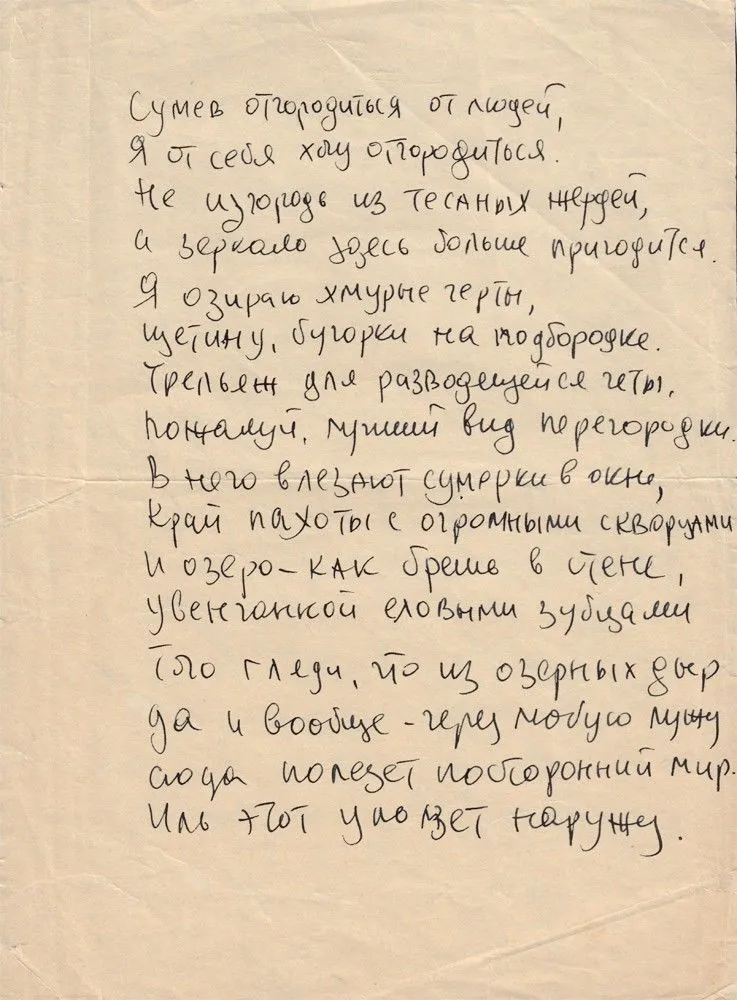 Сумев отгородиться от людей,
Я от себя хочу отгородиться.
Не изгородь из тесаных жердей,
а зеркало здесь больше пригодится.
Я озираю хмурые черты,
щетину, бугорки на подбородке.
Трельяж для разводящейся четы,
пожалуй, лучший вид перегородки.
В него влезают сумерки в окне,
край пахоты с огромными скворцами
и озеро - как брешь в стене,
увенчанной еловыми зубцами
Того гляди, что из озерных дыр
да и вообще - через любую лужу
сюда полезет посторонний мир.
Иль этот уползет наружу.